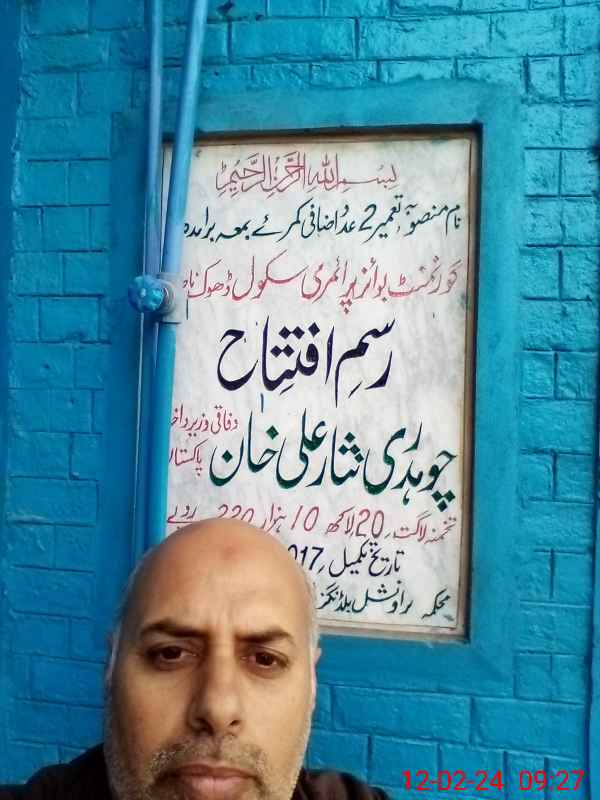 بسم الله الرحمن الرحيم
نام منصوبہ، تعمیر 2 عدد اضافی کمرے بمعہ برامدہ
گورنمنٹ بوائز پرائمری سکول ڈھوک
رسمِ افتتاح
وفاقی وزیر
چوہدری نثار علی خان
تخمنہ لاگت، 20 لاکھ 10 ہزار 220 روپے
تاریخ تکمیل
محکمہ پراونشل بلڈنگز
12-02-24 09:27